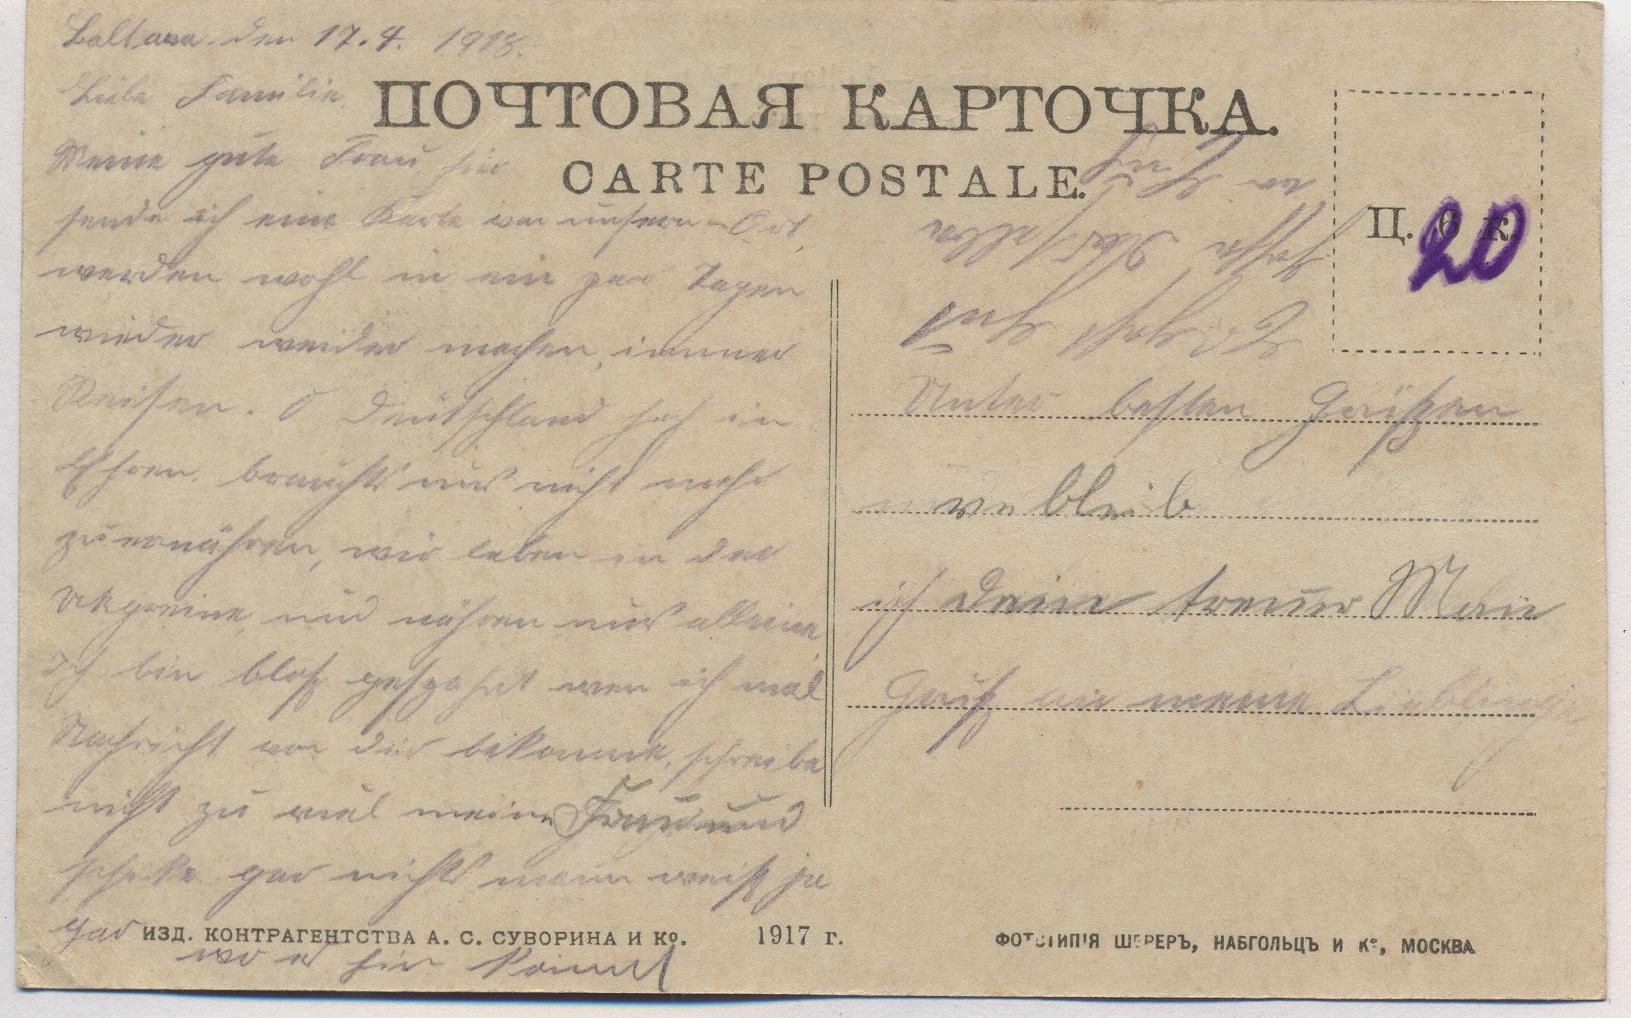 Baltawa den 17.4. 1918.
Liebe Familie,
Meine gute Frau hir
sende ich eine Karte von unsern Ort,
werden wohl in ein par Tagen
wieder weider machen, immer
Reisen. O Deutschland hoch in
Ehren. brauchts uns nicht mehr
zu ernähren, wir leben in der
Ukpreine, und nähren uns alleine,
Ich bin bloß gespahnt wen ich mal
Nachricht von dir bekomme, schreibe
nicht zu viel meine Frau und
schike gar nichts mann weiß ja
gar
wo es hin kommt
ПОЧТОВАЯ КАРТОЧКА.
CARTE POSTALE.
Ц. 6 к.
20
Unter besten Grüßen
verbleib
ich deine treuer Man
Gruß an meine Lieblinge
ИЗД. КОНТРАГЕНТСТВА А. С. СУВОРИНА И Кº. 1917 г.
ФОТОТИПІЯ ШЕРЕРЪ, НАБГОЛЬЦЪ И Кº, МОСКВА